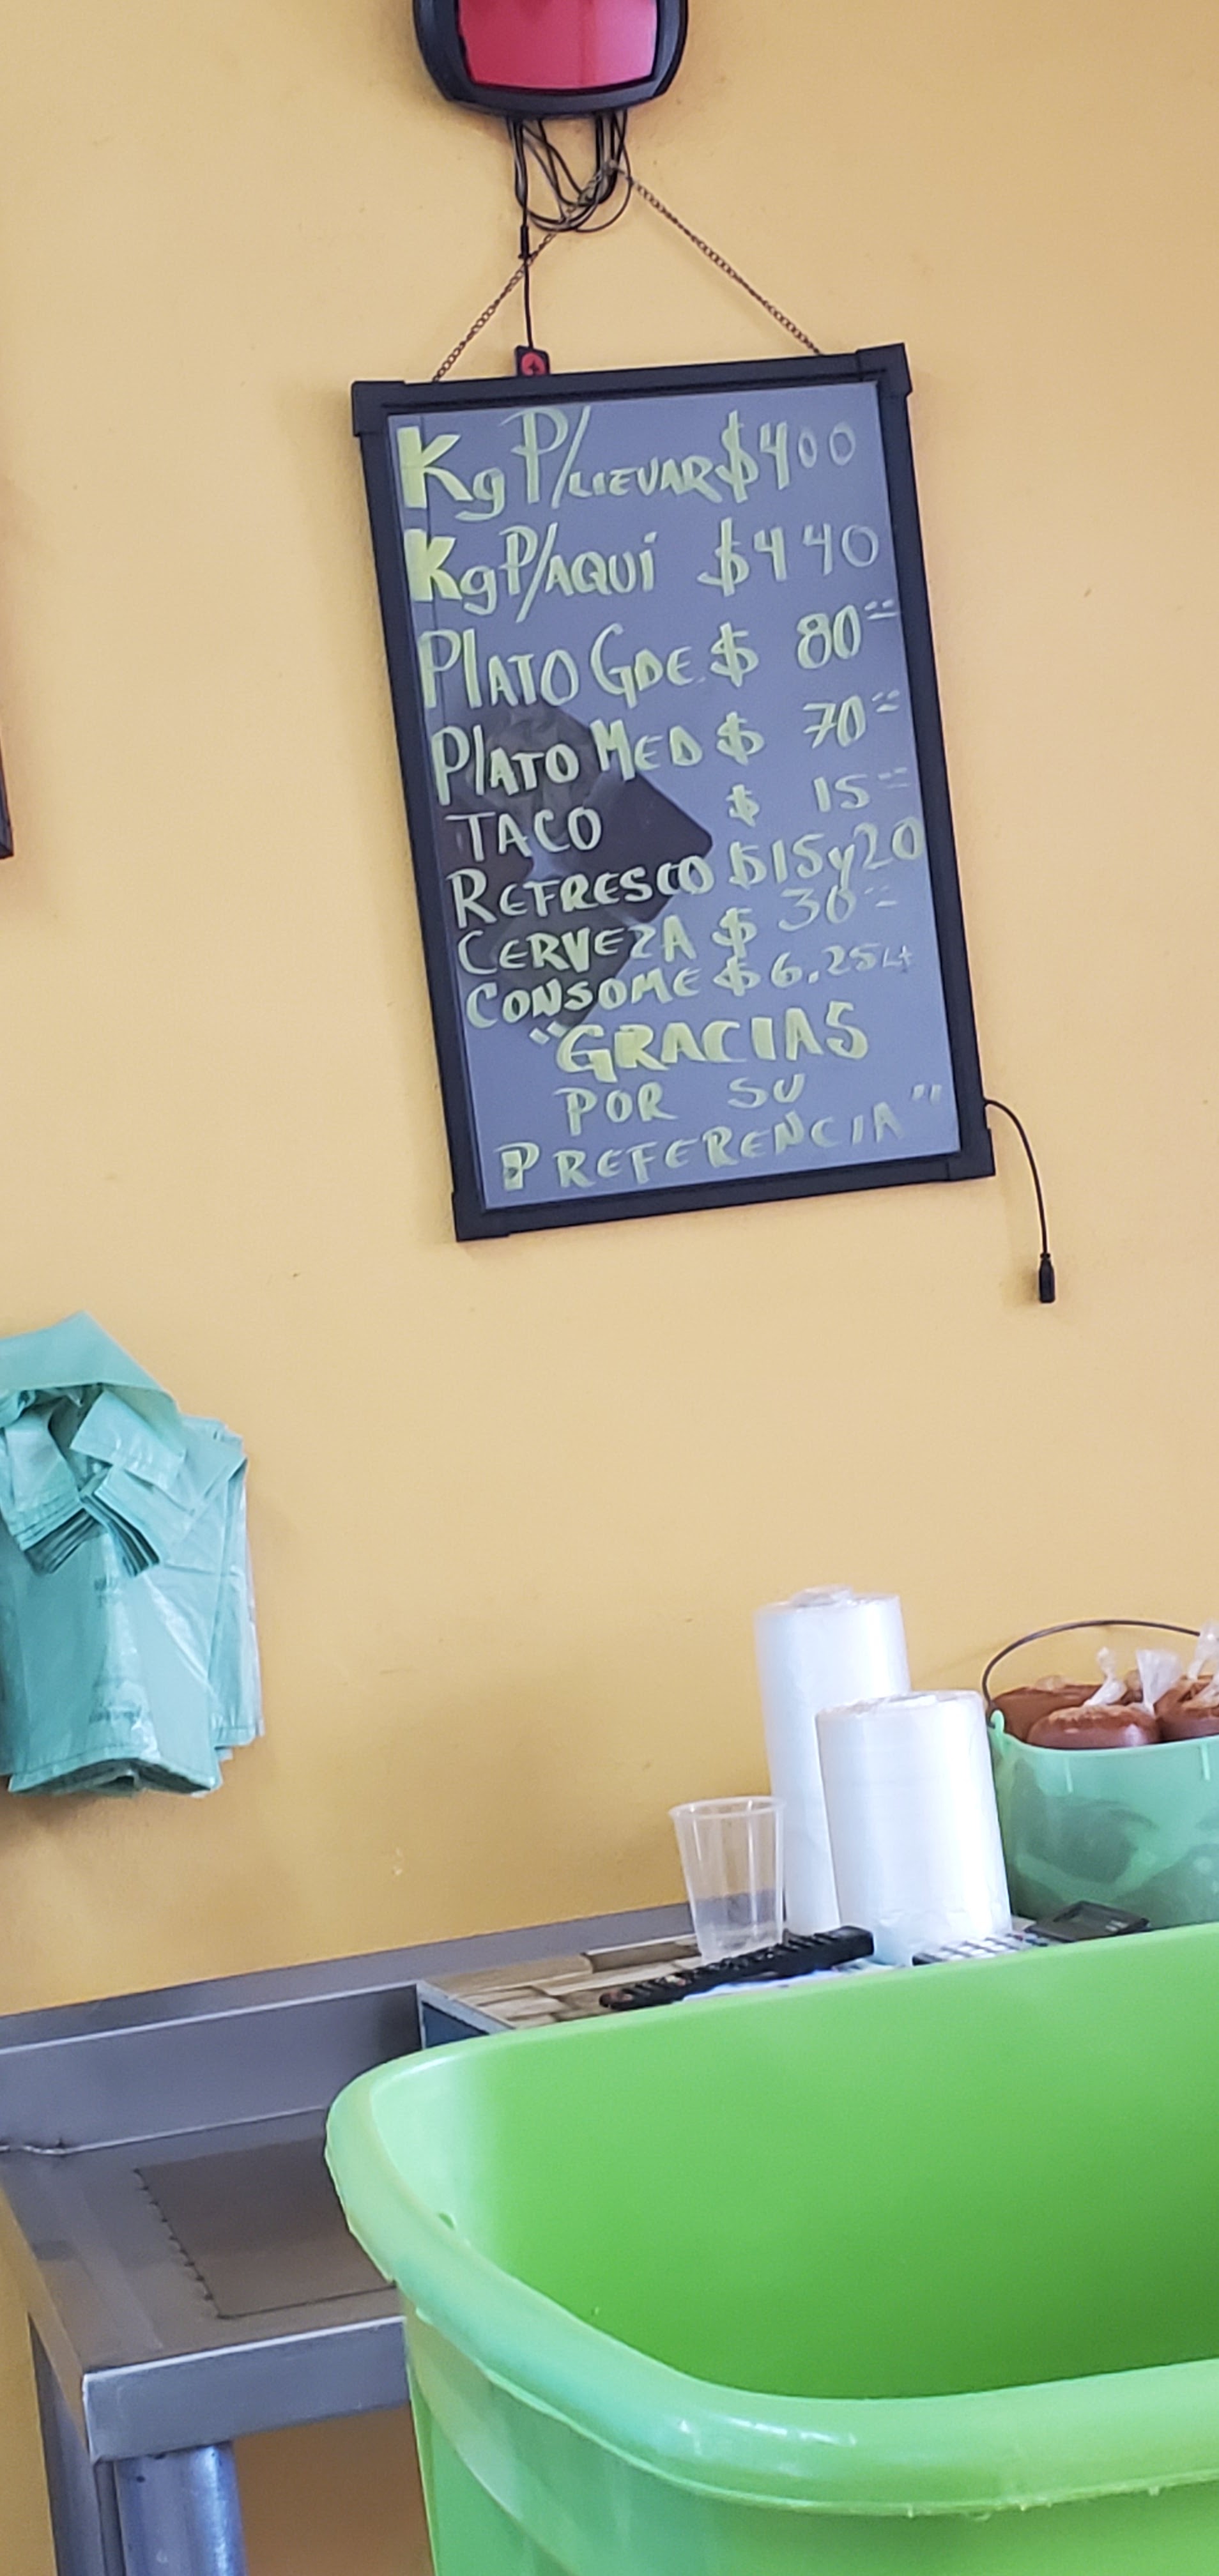 Kg P/LLEVAR $400
Kg P/AQUÍ $440
PLATO GDE. $ 80=
PLATO MED $ 70=
TACO $ 15=
REFRESCO $15y20
CERVEZA $ 30=
CONSOME $ 6.25
"GRACIAS
POR SU
PREFERENCIA"